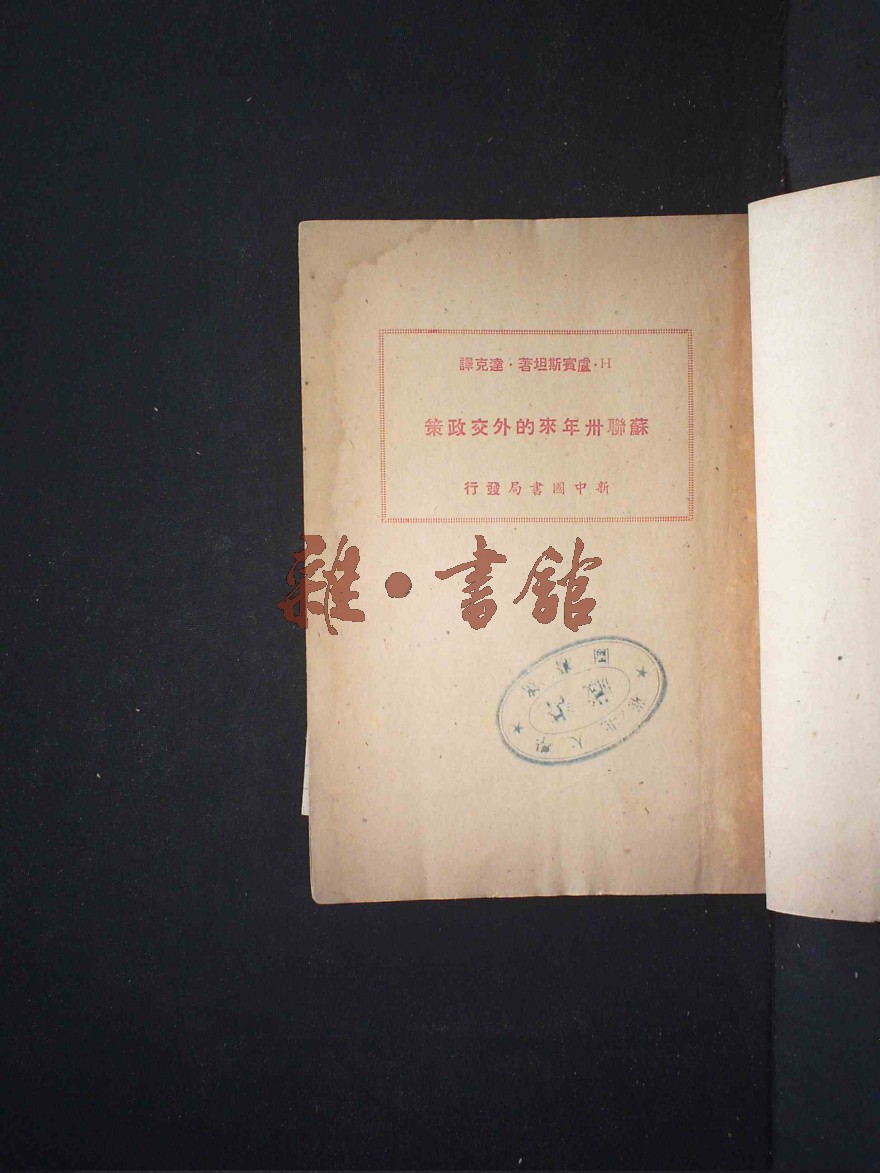 H·盧賓斯坦著·達克譯
蘇聯卅年來的外交政策
新中國書局發行
雜·書館